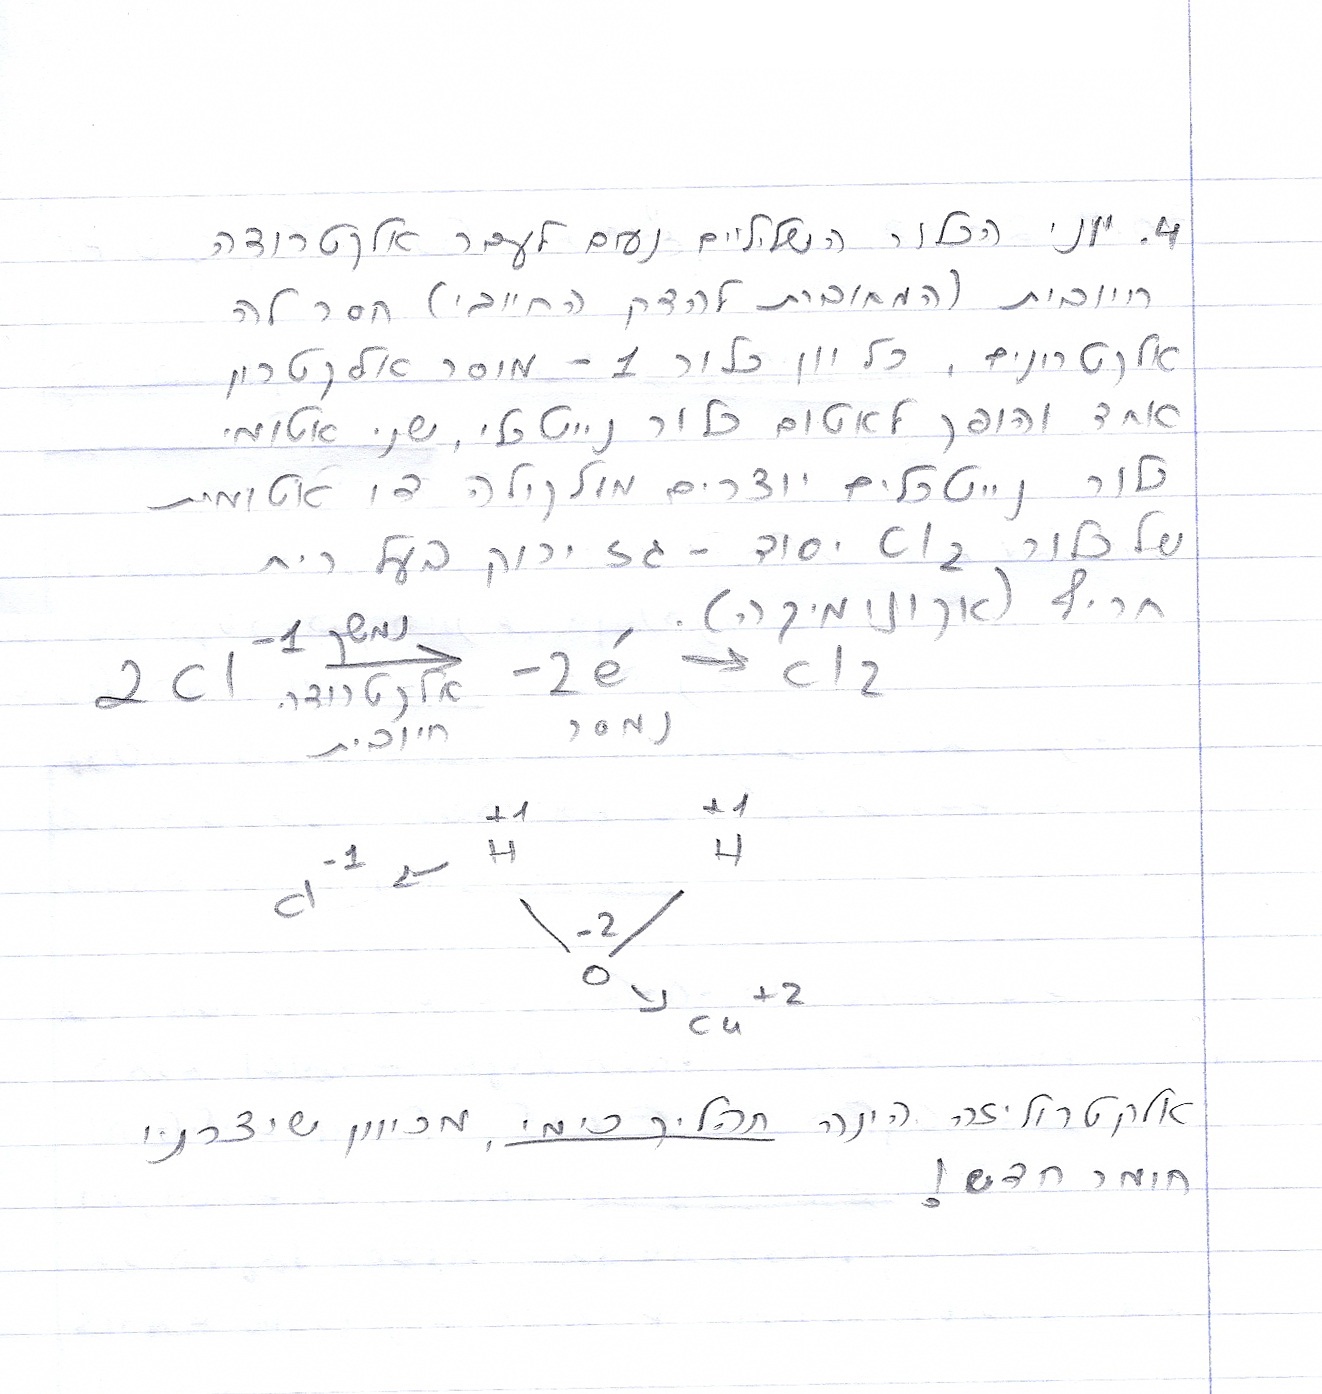 4. יוני הכלור השליליים נעים לעבר אלקטרודה
חיובית (המחוברת להדק החיובי) חסר לה
אלקטרונים, כל יון כלור 1- מוסר אלקטרון
אחד והופך לאטום כלור נייטרלי, שני אטומי
כלור נייטרלים יוצרים מולקולה דו אטומית
של כלור Cl2 יסוד - גז ירוק בעל ריח
חריף (אקונומיקה).
2Cl -1 נמשך → -2é → Cl2
אלקטרודה נמסר
חיובית
+1 +1
H H
Cl -1 ←
-2
O
→ Cu +2
אלקטרוליזה הינה תהליך כימי, מכיוון שיצרנו
חומר חדש!